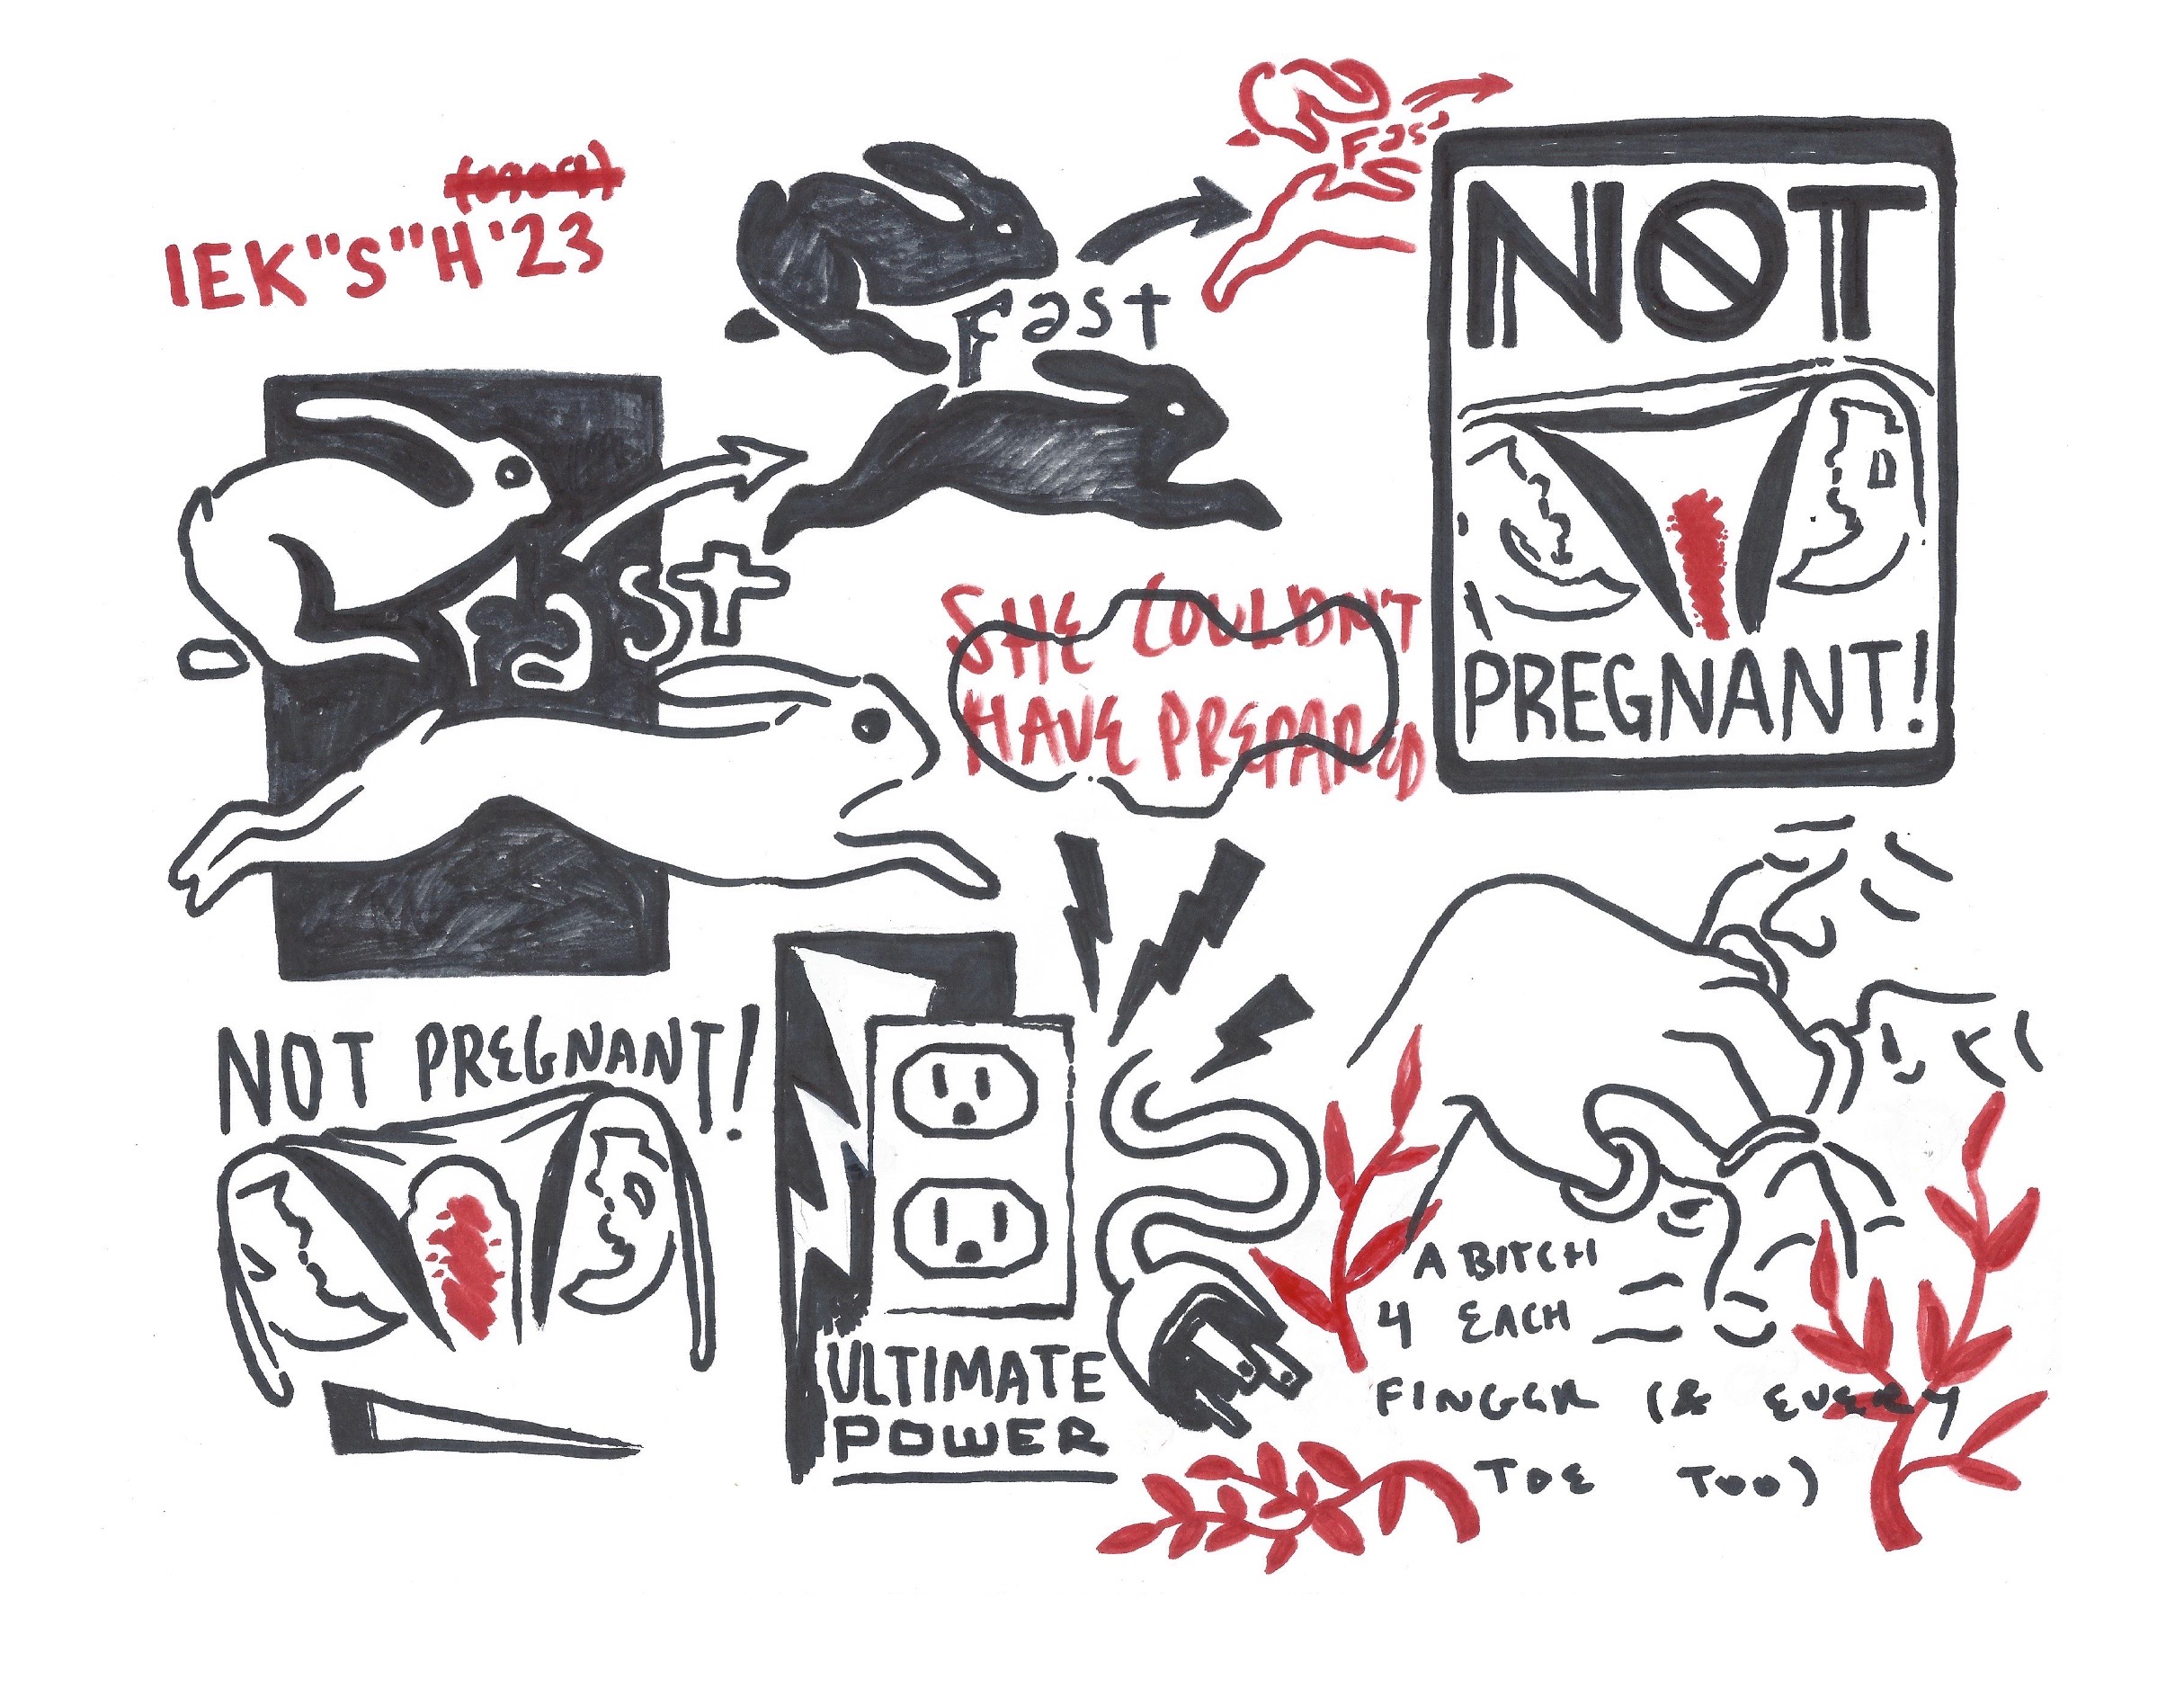 IEK"S"H '23
Fast
Fas
NOT
PREGNANT!
Fast
SHE COULDN'T
HAVE PREPARED
NOT PREGNANT!
ULTIMATE
POWER
A BITCH
4 EACH
FINGER (& EVERY
TOE TOO)